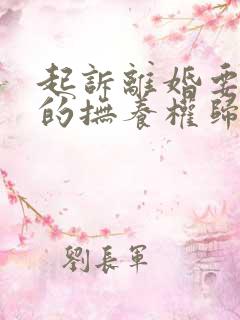 起訴離婚要
的撫養權歸
劉長軍